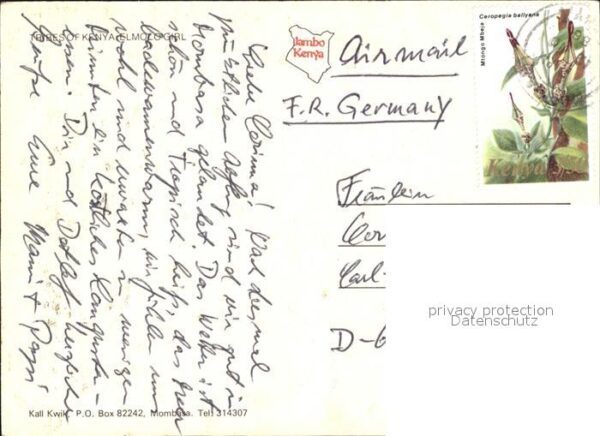 TRIBES OF KENYA, ELMOLO GIRL
Liebe Corinna! Nach diesmal
pünktlichem Abflug sind wir gut in
Mombasa gelandet. Das Wetter ist
schön und tropisch heiß, das Meer
badewannenwarm, wir fühlen uns
wohl und erwarten in wenigen
ein köstliches Langusten-
essen. Dir und Detlef herzliche
Grüße Eure Mami + Papi
Kall Kwik, P.O. Box 82242, Mombasa. Tel: 314307
Jambo
Kenya
Airmail
F.R. Germany
Mtongo Mbeja
Ceropegia ballyana
Kenya
Fräulein
Cor
Carl-
D-6
privacy protection
Datenschutz